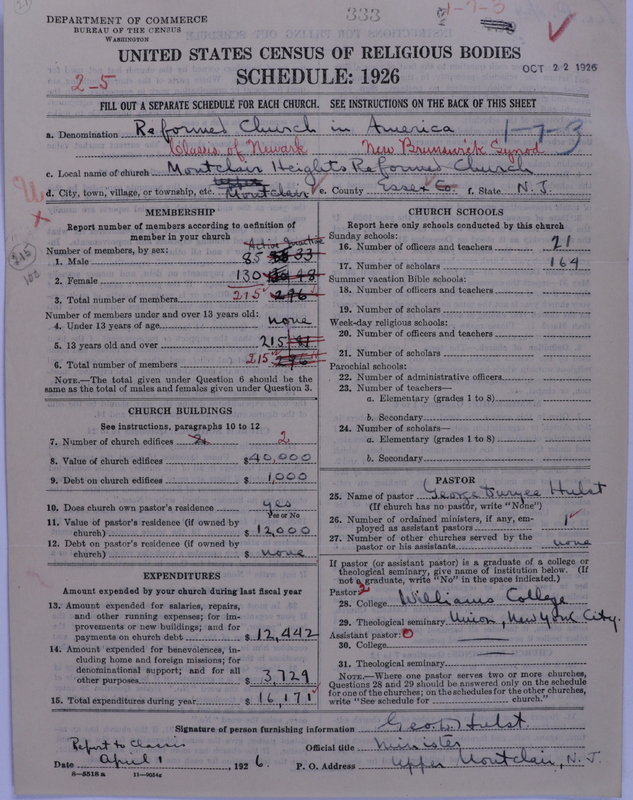 DEPARTMENT OF COMMERCE
BUREAU OF THE CENSUS
WASHINGTON
333
1-7-3
UNITED STATES CENSUS OF RELIGIOUS BODIES
SCHEDULE: 1926
OCT 22 1926
2-5
FILL OUT A SEPARATE SCHEDULE FOR EACH CHURCH. SEE INSTRUCTIONS ON THE BACK OF THIS SHEET
a. Denomination Reformed Church in America 1-7-3
Classis of Newark New Brunswick Synod
c. Local name of church Montclair Heights Reformed Church
d. City, town, village, or township, etc. Montclair e. County Essex Co. f. State N. J.
MEMBERSHIP
Report number of members according to definition of
member in your church
Active Inactive
Number of members, by sex:
1. Male 85 33
2. Female 130 48
3. Total number of members 215 296
Number of members under and over 13 years old:
4. Under 13 years of age none
5. 13 years old and over 215 81
6. Total number of members 215 296
NOTE.—The total given under Question 6 should be the
same as the total of males and females given under Question 3.
CHURCH BUILDINGS
See instructions, paragraphs 10 to 12
7. Number of church edifices 2
8. Value of church edifices $40,000
9. Debt on church edifices $1,000
10. Does church own pastor's residence yes
Yes or No
11. Value of pastor's residence (if owned by
church) $12,000
12. Debt on pastor's residence (if owned by
church) $ none
EXPENDITURES
Amount expended by your church during last fiscal year
13. Amount expended for salaries, repairs,
and other running expenses; for im-
provements or new buildings; and for
payments on church debt $12,442
14. Amount expended for benevolences, in-
cluding home and foreign missions; for
denominational support; and for all
other purposes $3,729
15. Total expenditures during year $16,171
CHURCH SCHOOLS
Report here only schools conducted by this church
Sunday schools:
16. Number of officers and teachers 21
17. Number of scholars 164
Summer vacation Bible schools:
18. Number of officers and teachers
19. Number of scholars
Week-day religious schools:
20. Number of officers and teachers
21. Number of scholars
Parochial schools:
22. Number of administrative officers
23. Number of teachers—
a. Elementary (grades 1 to 8)
b. Secondary
24. Number of scholars—
a. Elementary (grades 1 to 8)
b. Secondary
PASTOR
25. Name of pastor George Duryee Hulst
(If church has no pastor, write "None")
26. Number of ordained ministers, if any, em-
ployed as assistant pastors 1
27. Number of other churches served by the
pastor or his assistants none
If pastor (or assistant pastor) is a graduate of a college or
theological seminary, give name of institution below. (If
not a graduate, write "No" in the space indicated.)
Pastor: 2
28. College Williams College
29. Theological seminary Union, New York City.
Assistant pastor: 0
30. College
31. Theological seminary
NOTE.—Where one pastor serves two or more churches,
Questions 28 and 29 should be answered only on the schedule
for one of the churches; on the schedules for the other churches,
write "See schedule for church."
Signature of person furnishing information Geo. D. Hulst
Report to Classis
Official title Minister
Date April 1, 1926. P. O. Address Upper Montclair, N. J.
8-5518 a 11-9034